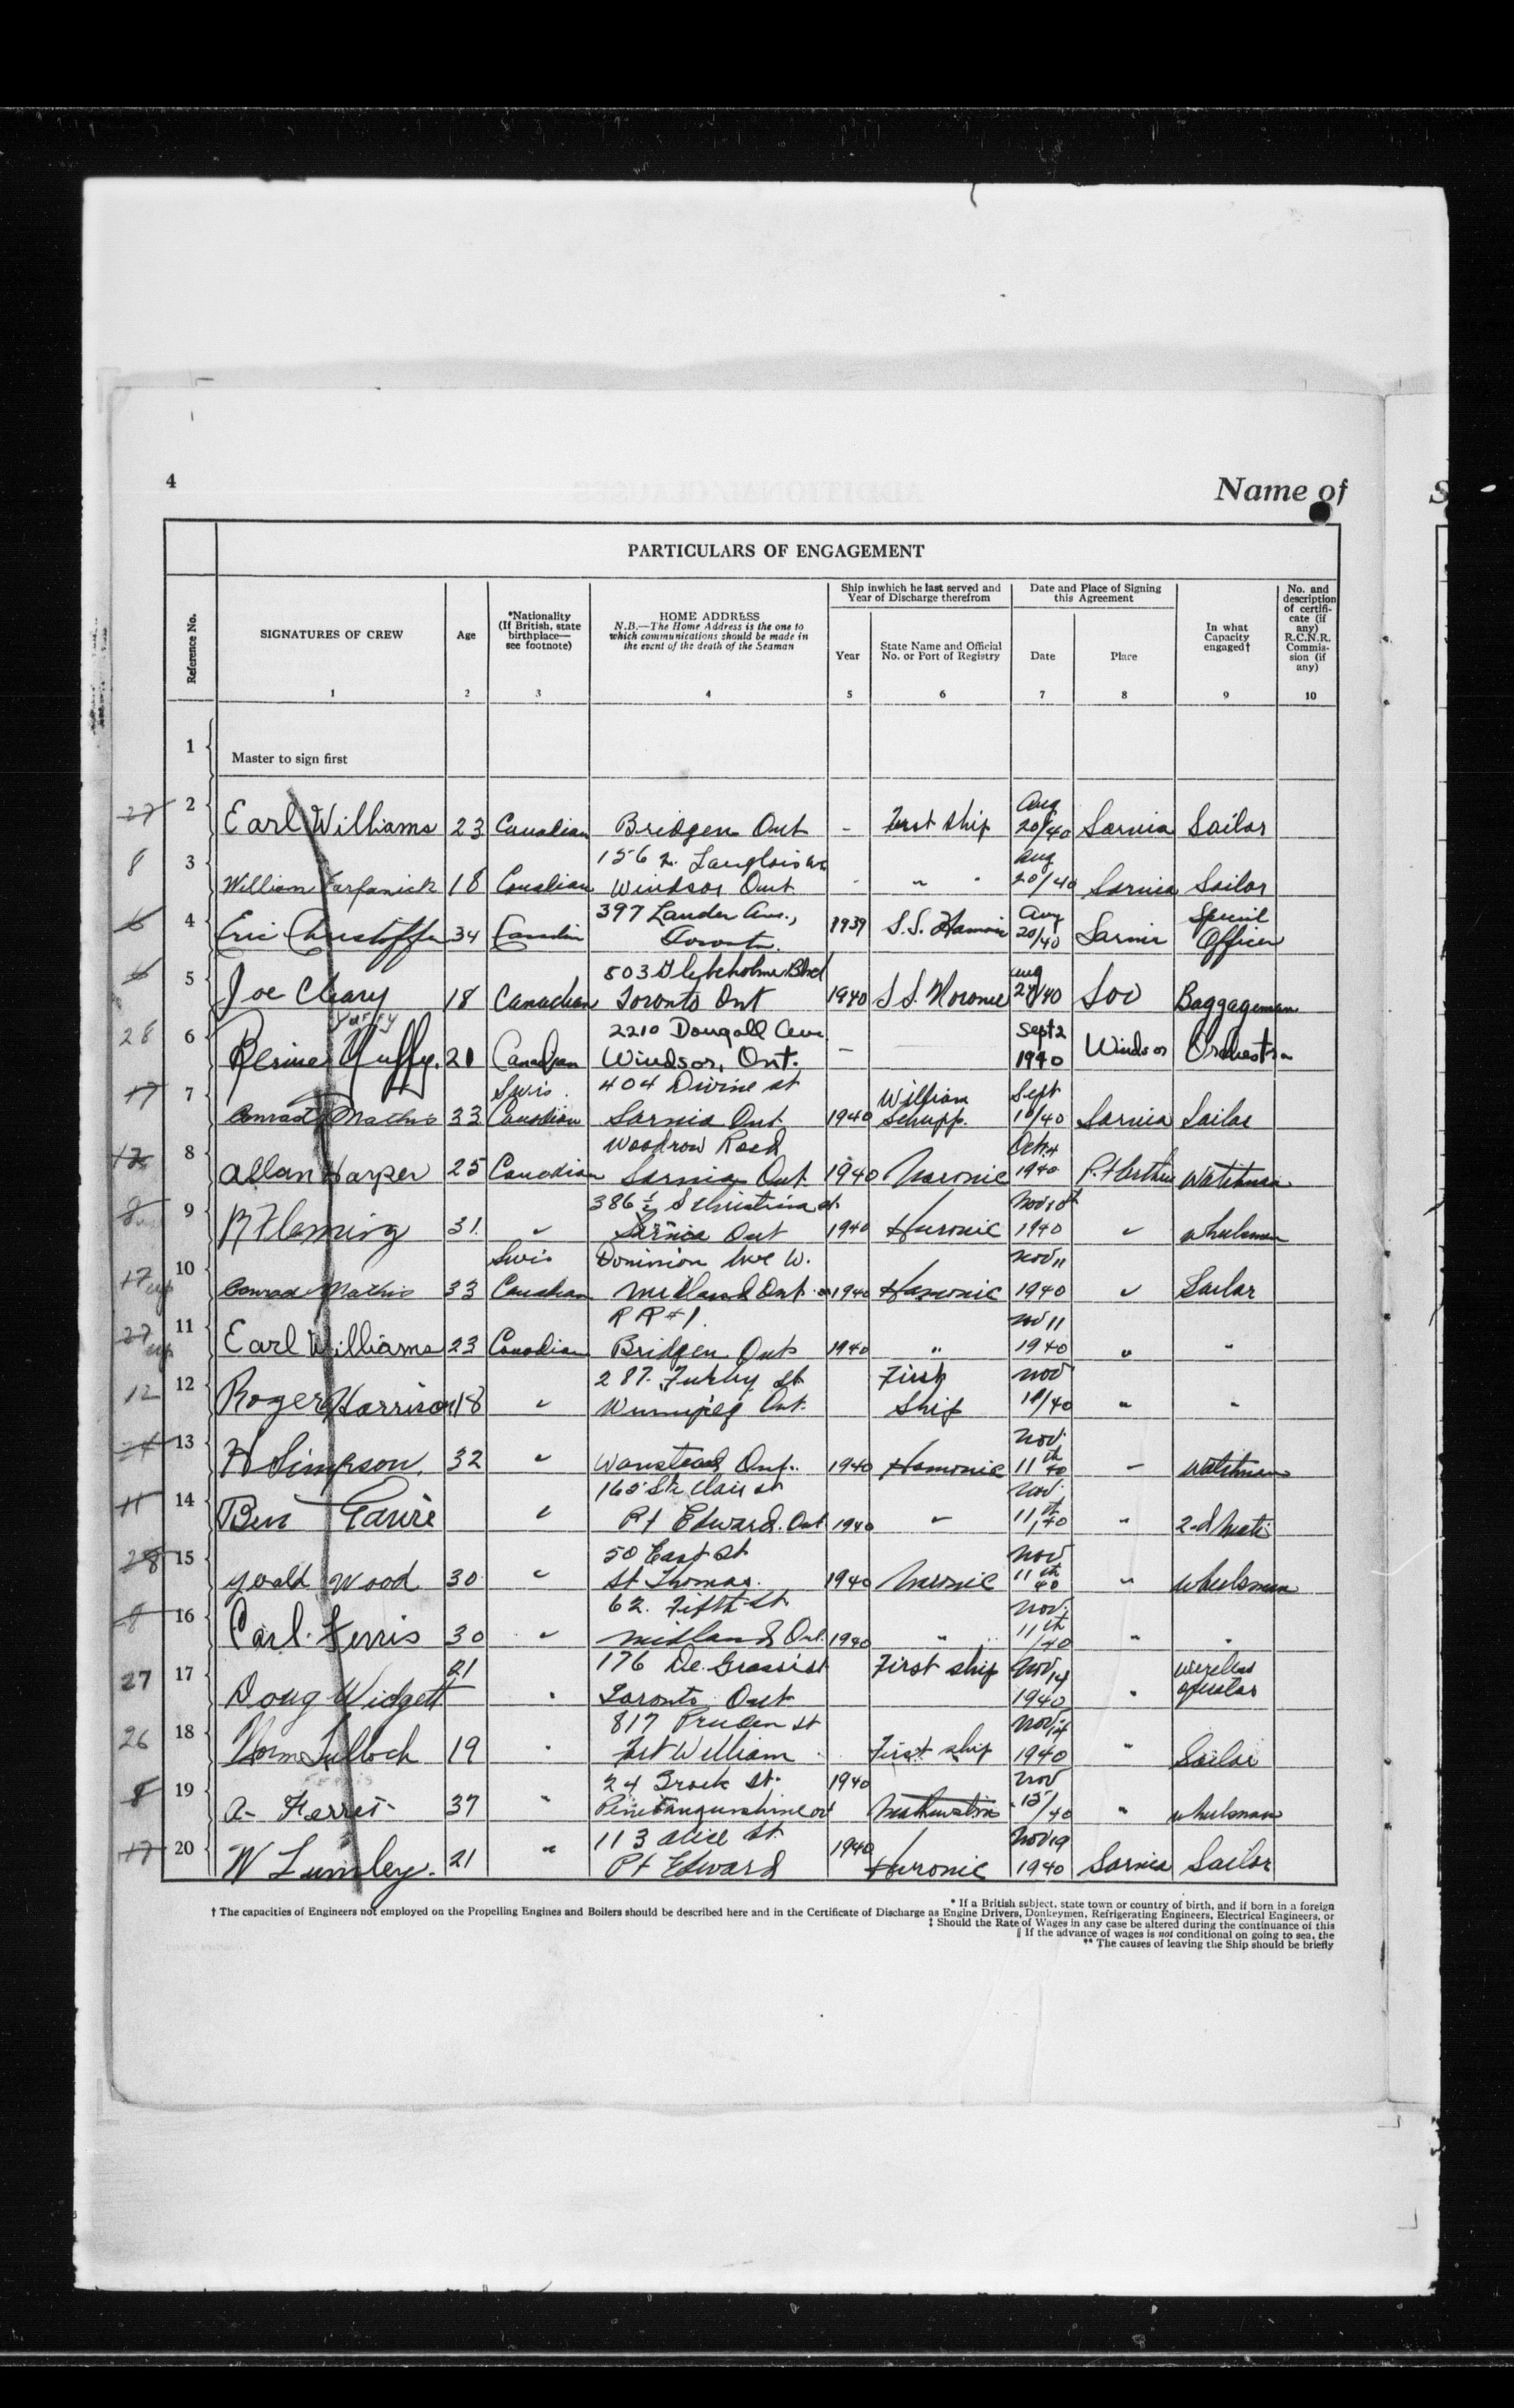 4
Name of
PARTICULARS OF ENGAGEMENT
Reference No.
SIGNATURES OF CREW
Age
*Nationality
(If British, state
birthplace—
see footnote)
HOME ADDRESS
N.B.—The Home Address is the one to
which communications should be made in
the event of the death of the Seaman
Ship inwhich he last served and
Year of Discharge therefrom
Year
State Name and Official
No. or Port of Registry
Date and Place of Signing
this Agreement
Date
Place
In what
Capacity
engaged†
No. and
description
of certifi-
cate (if
any)
R.C.N.R.
Commis-
sion (if
any)
1 2 3 4 5 6 7 8 9 10
1 Master to sign first
27 2 Earl Williams 23 Canadian Bridgen Ont - First ship Aug 20/40 Sarnia Sailor
8 3 William 18 Canadian 1562 Langlois Av Windsor Ont - " " Aug 20/40 Sarnia Sailor
6 4 Eric 34 397 Lauder Ave., Toronto. 1939 S.S. Aug 20/40 Sarnia Special Officer
6 5 Joe Cleary 18 Canadian 503 Blvd Toronto Ont 1940 S.S. Noronic Aug 24/40 Soo Baggageman
28 6 Duffy. 21 Canadian 2210 Dougall Ave Windsor, Ont. - Sept 2 1940 Windsor Orchestra
17 7 Conrad Mathis 33 Swis. Canadian 404 Divine st Sarnia Ont 1940 William Schupp. Sept 10/40 Sarnia Sailor
12 8 Allan Harper 25 Canadian Woodrow Road Sarnia Ont. 1940 Noronic Oct 4 1940 P. Arthur Watchman
8 9 R Fleming 31. " 386 1/2 S Christina st Sarnia Ont 1940 Huronic Nov 10th 1940 " Wheelsman
17 up 10 Conrad Mathis 33 Swis Canadian Dominion Ave W. Midland Ont 1940 Hamonic Nov 11 1940 " Sailor
27 up 11 Earl Williams 23 Canadian R R #1. Bridgen Ont 1940 " Nov 11 1940 " "
12 12 Roger Harrison 18 " 287. Furby St Winnipeg Ont. First Ship Nov 10/40 " "
13 H Simpson. 32 " Wanstead Ont. 1940 Hamonic Nov. 11th 40 " Watchman
11 14 Ben " 165 St Clair st Pt Edward. Ont 1940 " Nov. 11th/40 " 2nd Mate
28 15 Wood 30 " 50 East St St Thomas. 1940 Noronic Nov 11th 40 " Wheelsman
8 16 Carl. Ferris 30 " 62. Fifth St Midland Ont. 1940 " Nov. 11th/40 " "
27 17 Doug Widgett 21 " 176 De Grassi st Toronto Ont First ship Nov 14 1940 " wireless operator
26 18 Norm Tulloch 19 " 817 Pruden st Fort William First ship Nov 14 1940 " Sailor
8 19 A- Ferris- 37 " 24 Brock St. 1940 Nov 15/40 " Wheelsman
17 20 W Lumley. 21 " 113 Alice St. Pt Edward 1940 Huronic Nov 19 1940 Sarnia Sailor
* If a British subject, state town or country of birth, and if born in a foreign
† The capacities of Engineers not employed on the Propelling Engines and Boilers should be described here and in the Certificate of Discharge as Engine Drivers, Donkeymen, Refrigerating Engineers, Electrical Engineers, or
‡ Should the Rate of Wages in any case be altered during the continuance of this
‖ If the advance of wages is not conditional on going to sea, the
** The causes of leaving the Ship should be briefly